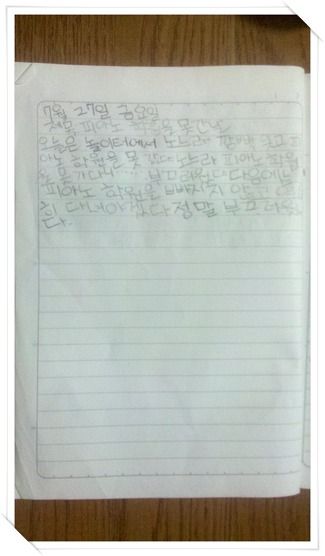 7월 27일 금요일
제목 피아노 학원을 못간날
오늘은 놀이터에서 노느라 깜빡 잊고 피
아노 학원을 못 갔다 노느라 피아노 학원
을 못 가다니…. 부끄러웠다 다음에는
피아노 학원을 빠지지 않고
다녀야 겠다 정말 부끄러웠
다.